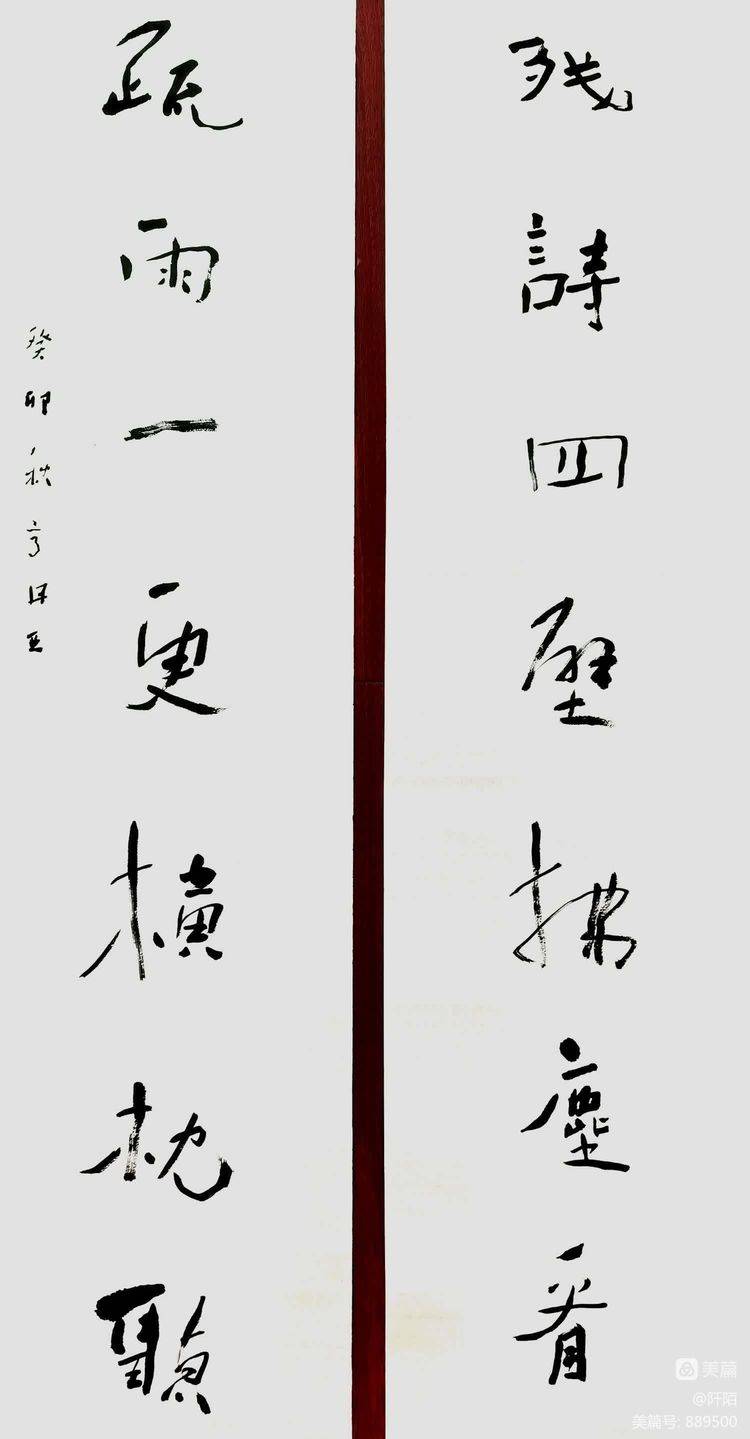 残詩四壁拂塵看
疏雨一更橫枕聽
癸卯秋亨
美篇
@阡陌
美篇号: 889500